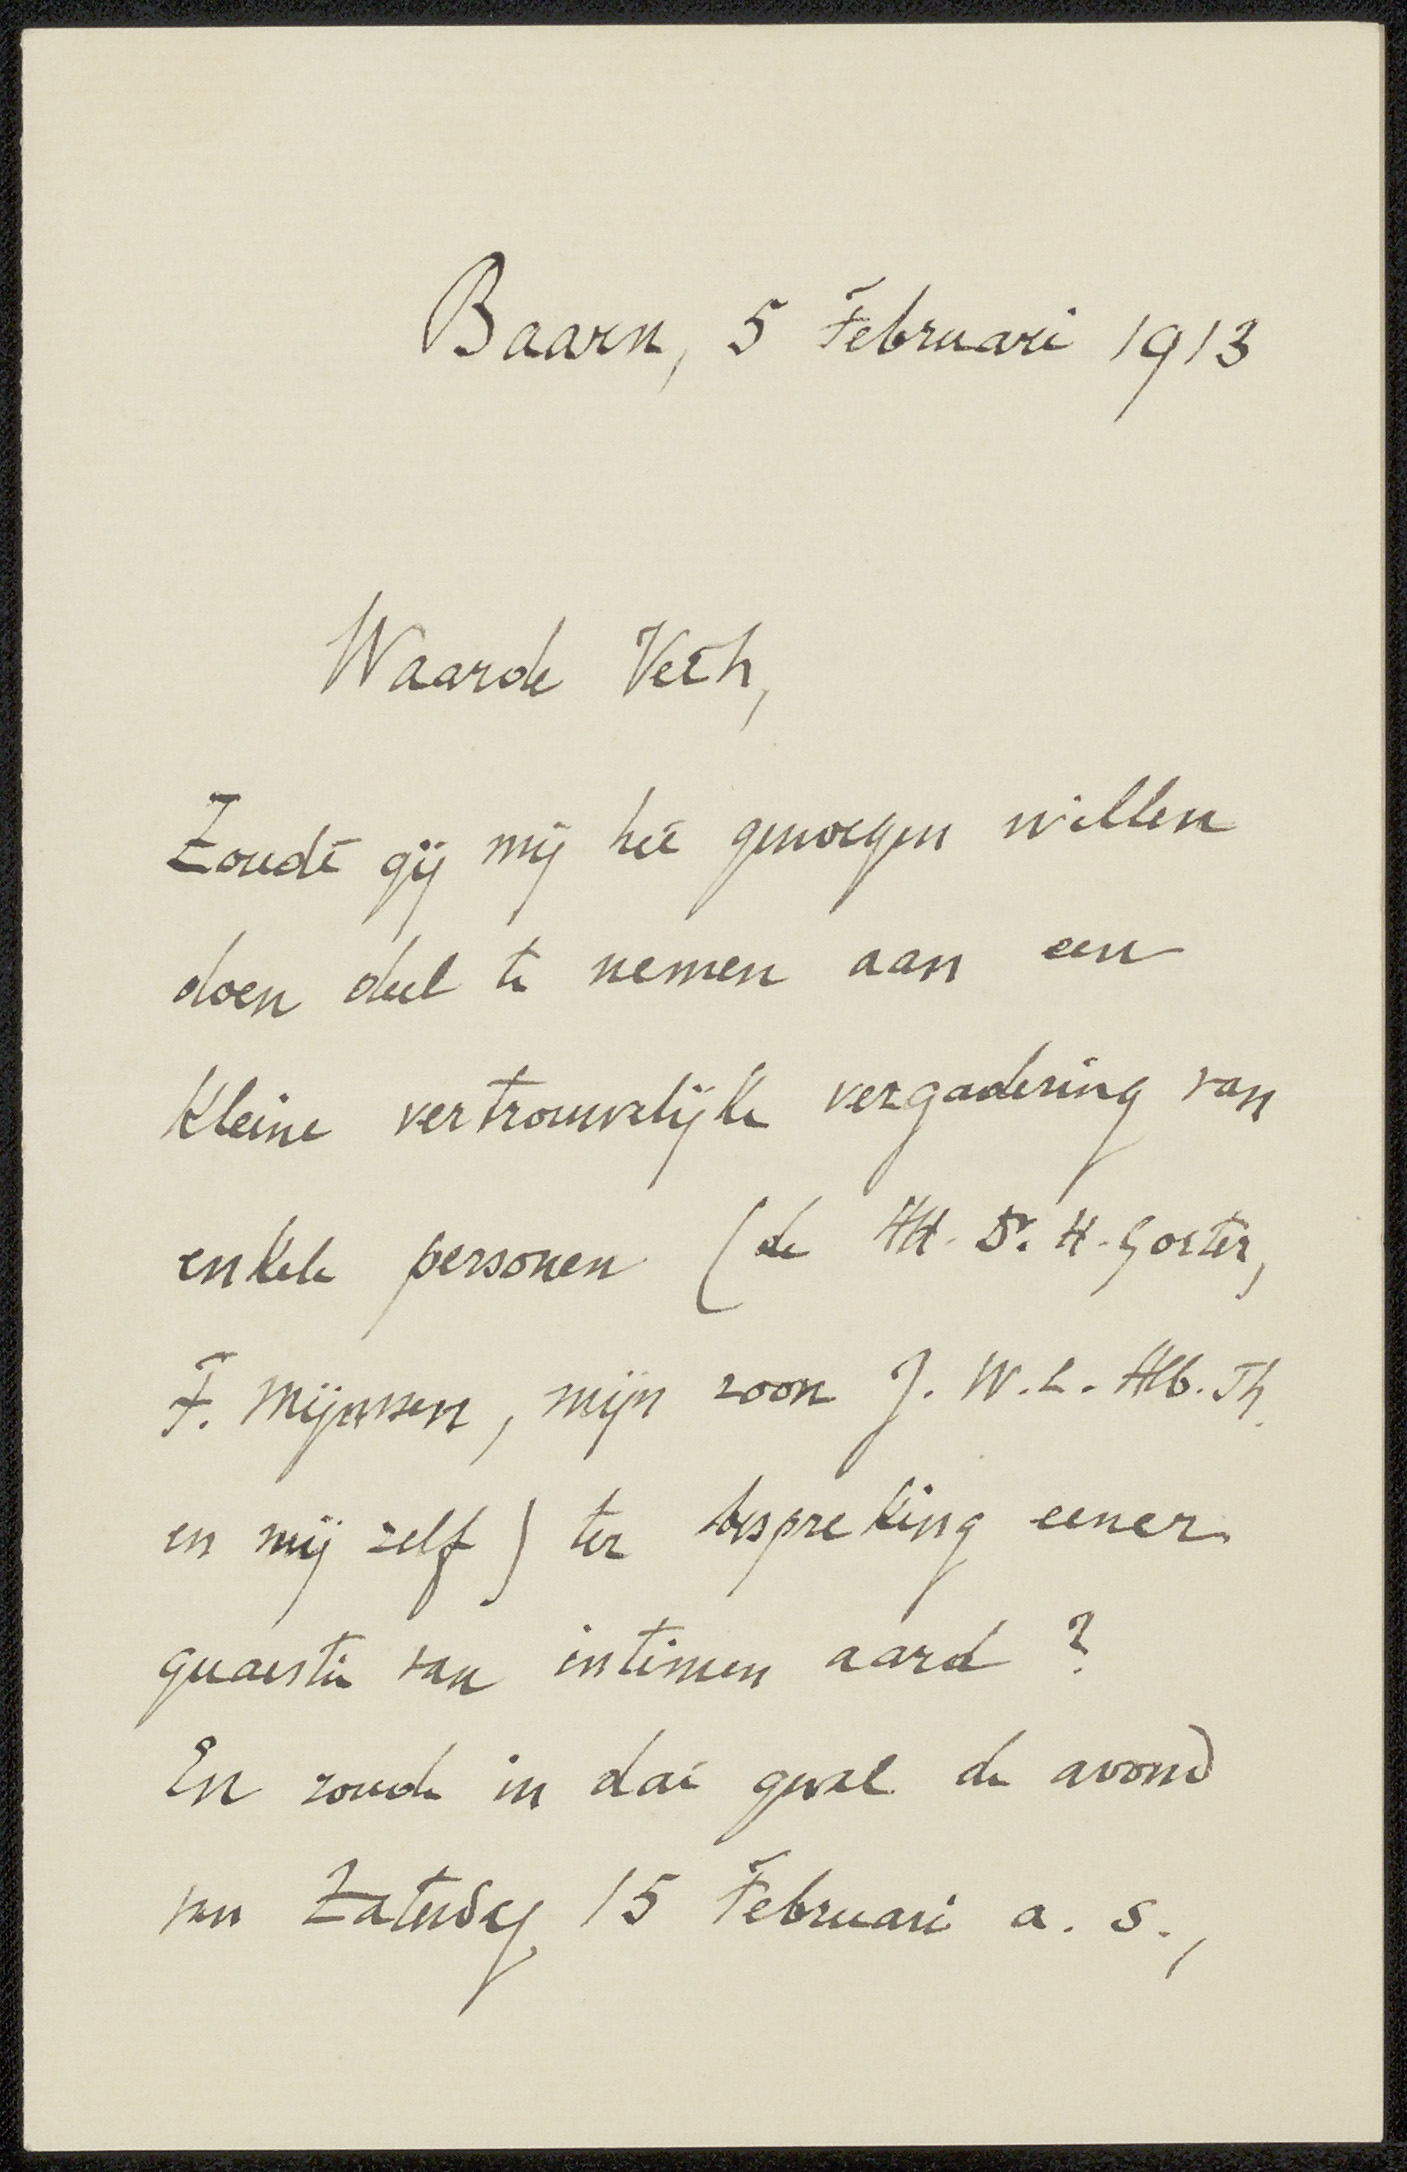 Baarn, 5 Februari 1913
Waarde Veth,
Zoudt gij mij het genoegen willen
doen deel te nemen aan een
kleine vertrouwelijke vergadering van
enkele personen (de HH. Dr. H. Gorter,
F. Mijnssen, mijn zoon J. W. L. Alb. Th.
en mij zelf) ter bespreking eener
quaestie van intimen aard?
En zoude in dat geval de avond
van Zaterdag 15 Februari a. s.,